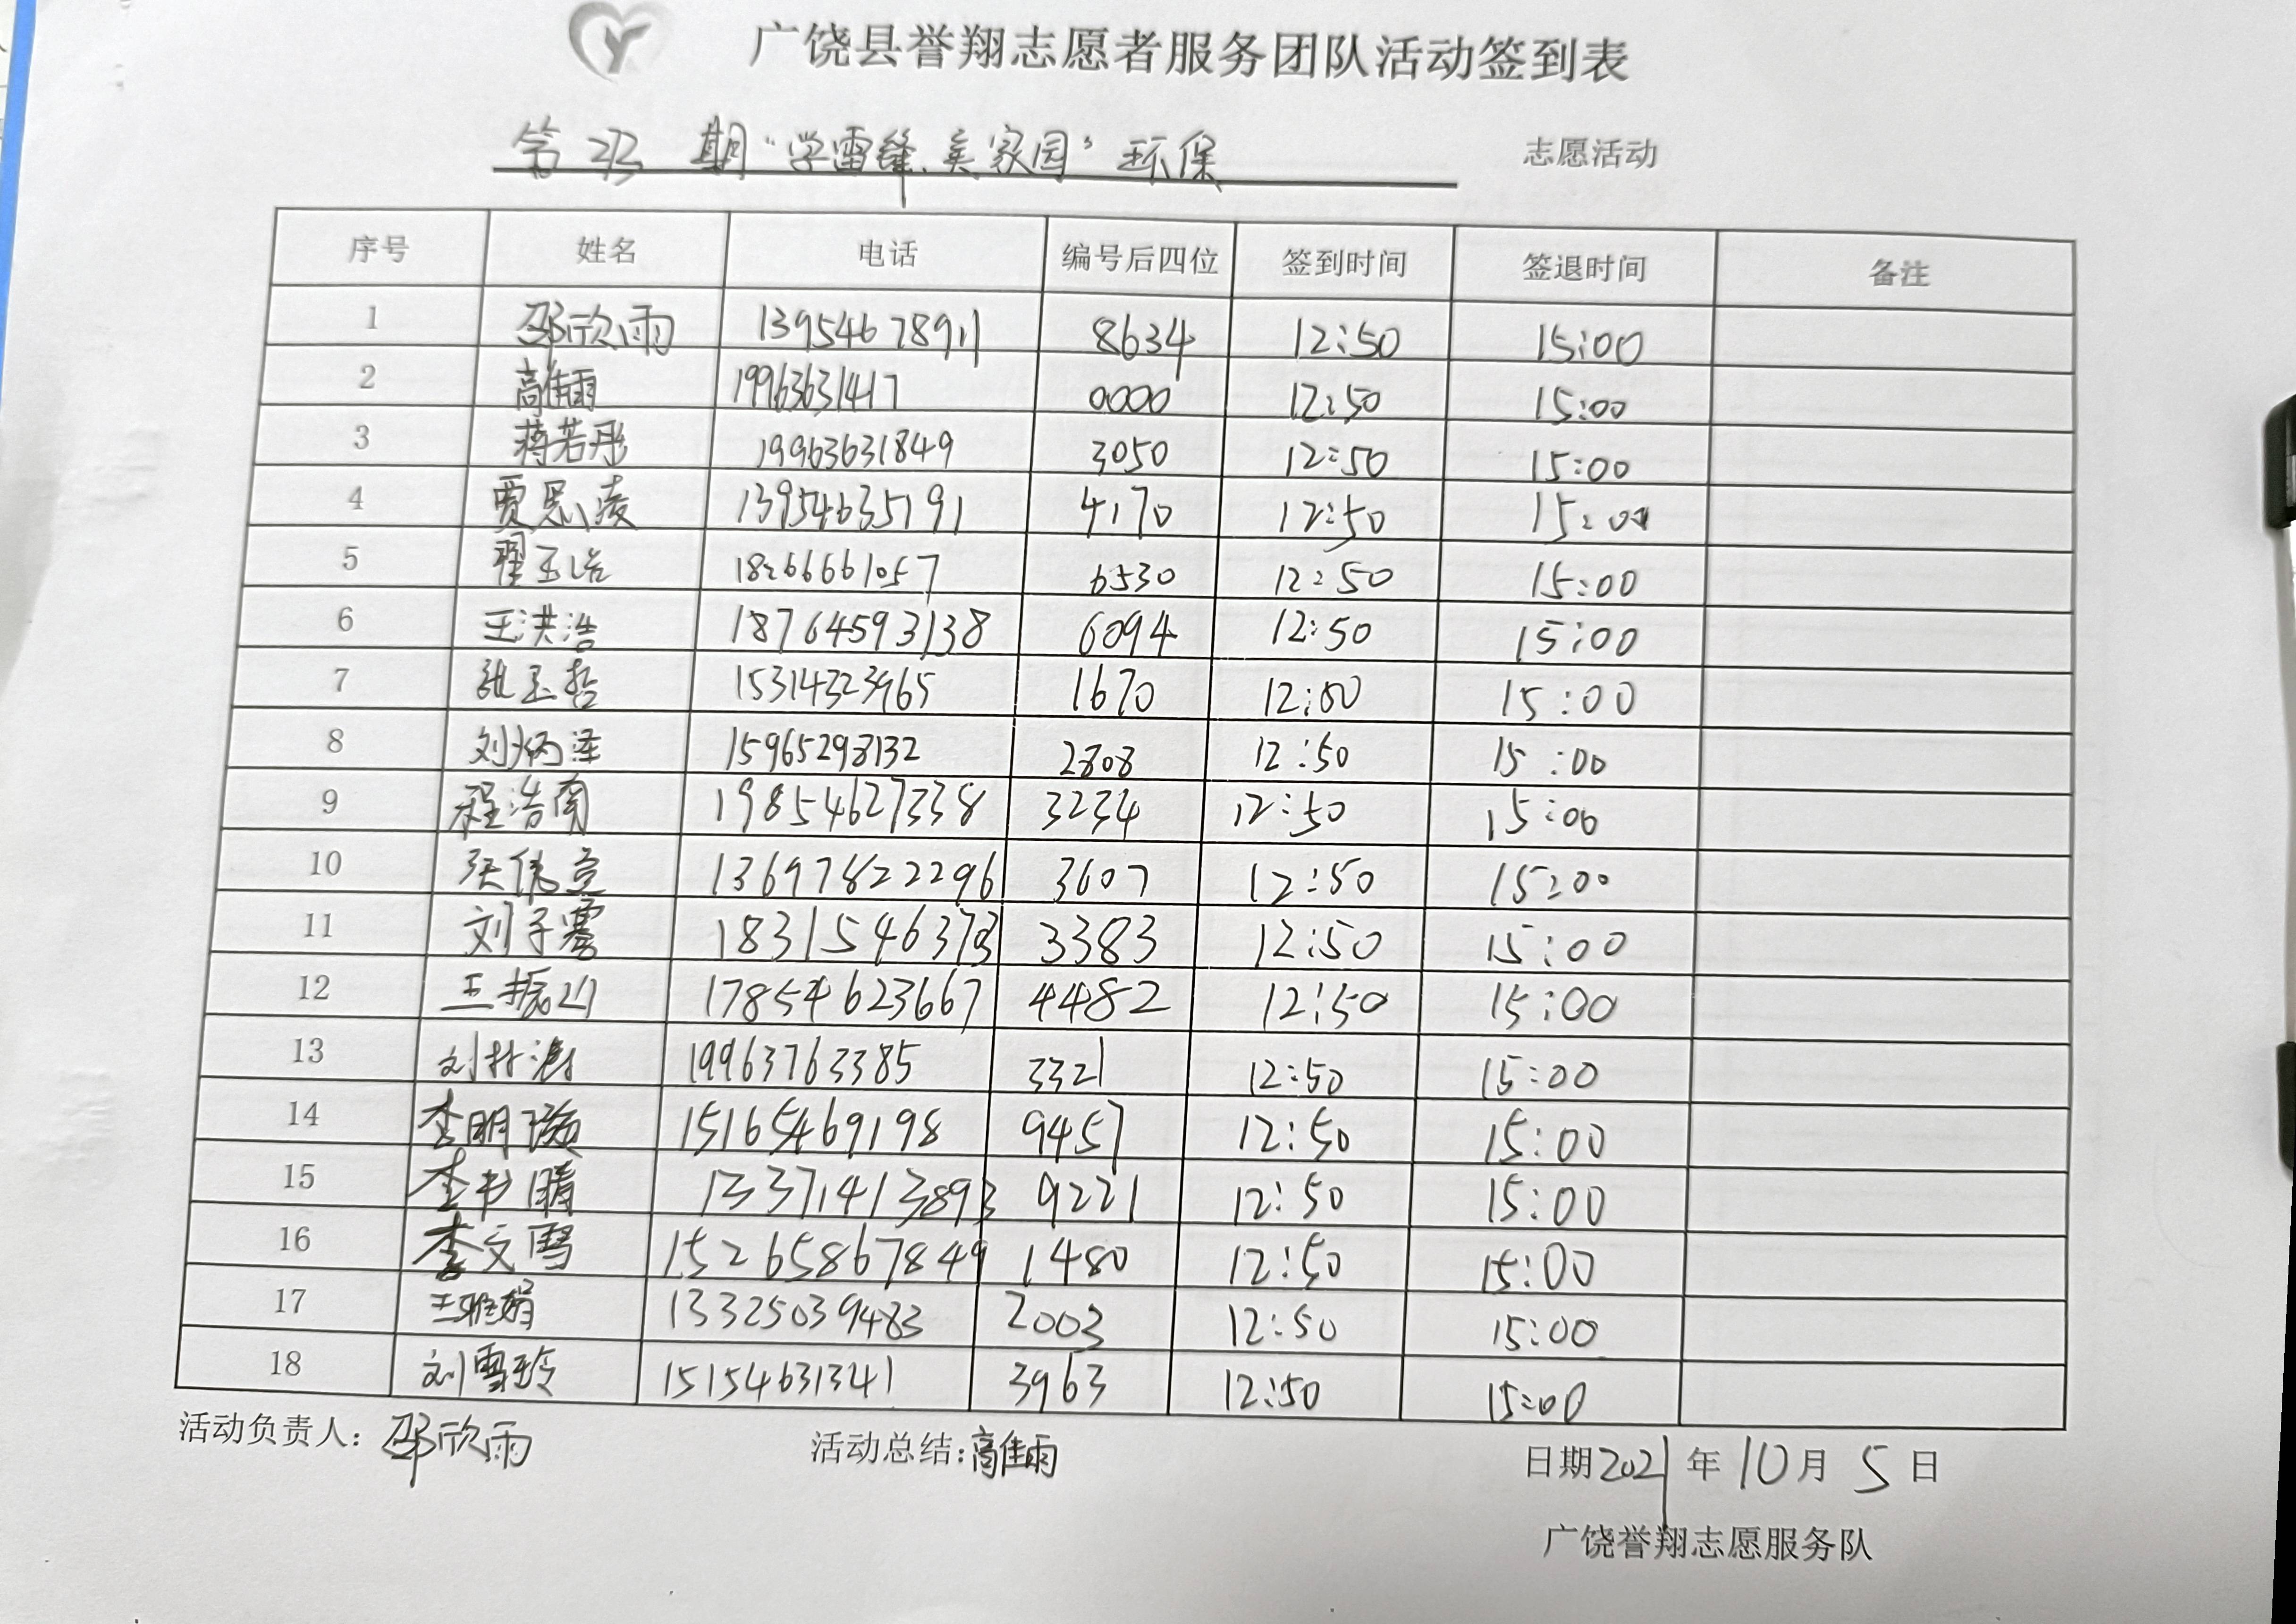 广饶县誉翔志愿者服务团队活动签到表
第 期“学雷锋、美家园”环保 志愿活动
序号 姓名 电话 编号后四位 签到时间 签退时间 备注
1 邵欣雨 13954678911 8634 12:50 15:00
2 高佳雨 19963631417 0000 12:50 15:00
3 蒋若彤 19963631849 3050 12:50 15:00
4 贾思凌 13954635191 4170 12:50 15:00
5 翟玉浩 18266661057 6530 12:50 15:00
6 王洪浩 18764593138 6094 12:50 15:00
7 张玉哲 15314323965 1670 12:50 15:00
8 刘炳泽 15965298132 2808 12:50 15:00
9 程浩南 19854627338 3234 12:50 15:00
10 张伟 13697822296 3607 12:50 15:00
11 刘子骞 18315463 3383 12:50 15:00
12 王振 17854623667 4482 12:50 15:00
13 刘 涛 19963763385 3321 12:50 15:00
14 李明 15165469198 9457 12:50 15:00
15 李书晴 13371413893 9221 12:50 15:00
16 李文雪 15265867849 1480 12:50 15:00
17 王雅娟 13325039483 2003 12:50 15:00
18 刘雪玲 15154631341 3963 12:50 15:00
活动负责人：邵欣雨 活动总结：高佳雨 日期2021年10月5日
广饶誉翔志愿服务队